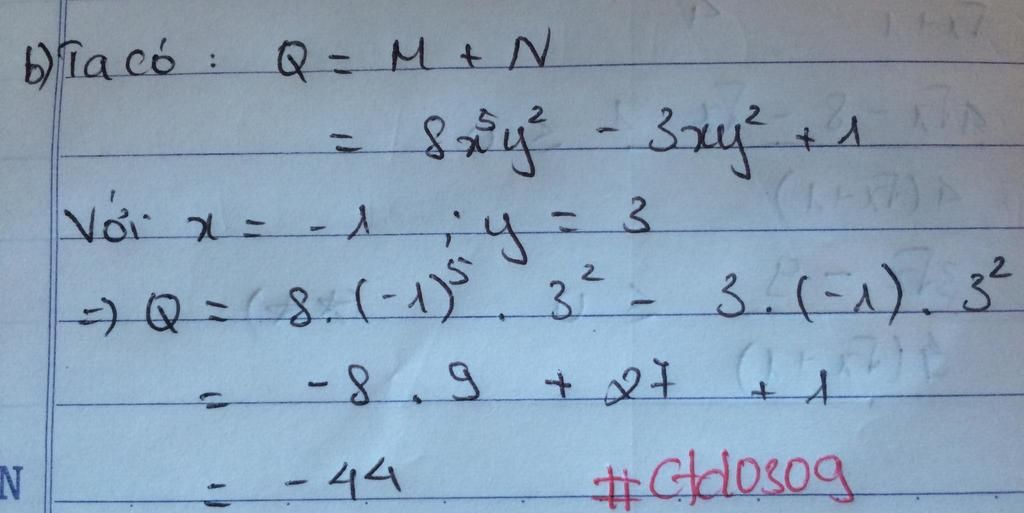 b) Ta có : Q = M + N
= 8x⁵y² - 3xy² + 1
Với x = -1 ; y = 3
=> Q = 8. (-1)⁵ . 3² - 3. (-1) . 3²
= -8 . 9 + 27 + 1
= -44 #Gtd0309
N